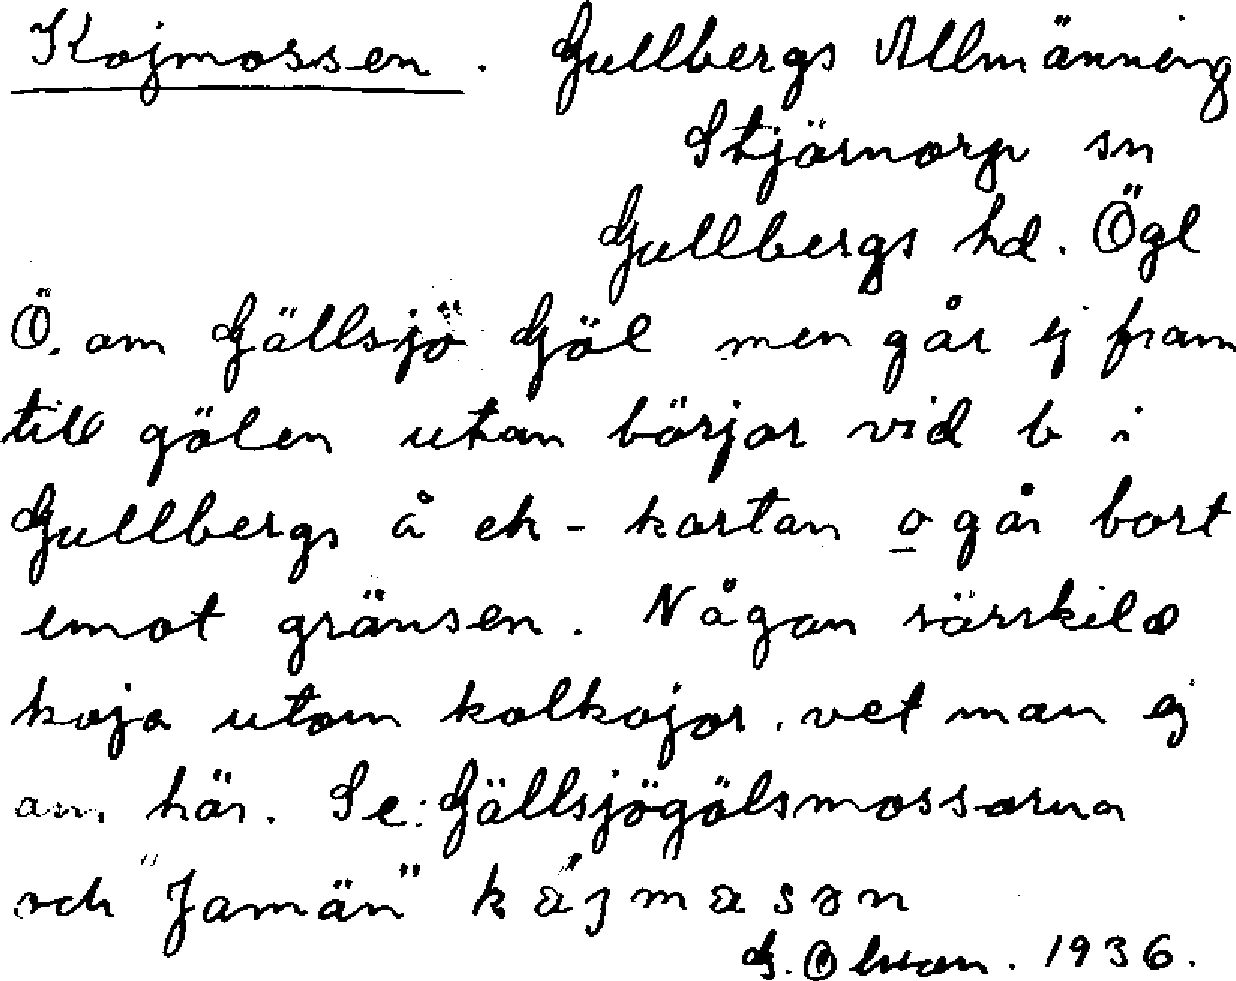 Kojmossen. Gullbergs Allmänning
Stjärnorp sn
Gullbergs hd. Ögl
Ö. om Gällsjö Göl men går ej fram
till gölen utan börjar vid b i
Gullbergs å ek-kartan o går bort
emot gränsen. Någon särskild
koja utom kolkojor vet man ej
om här. Se: Gällsjögölsmossarna
och "Jamän"
G. Olsson. 1936.